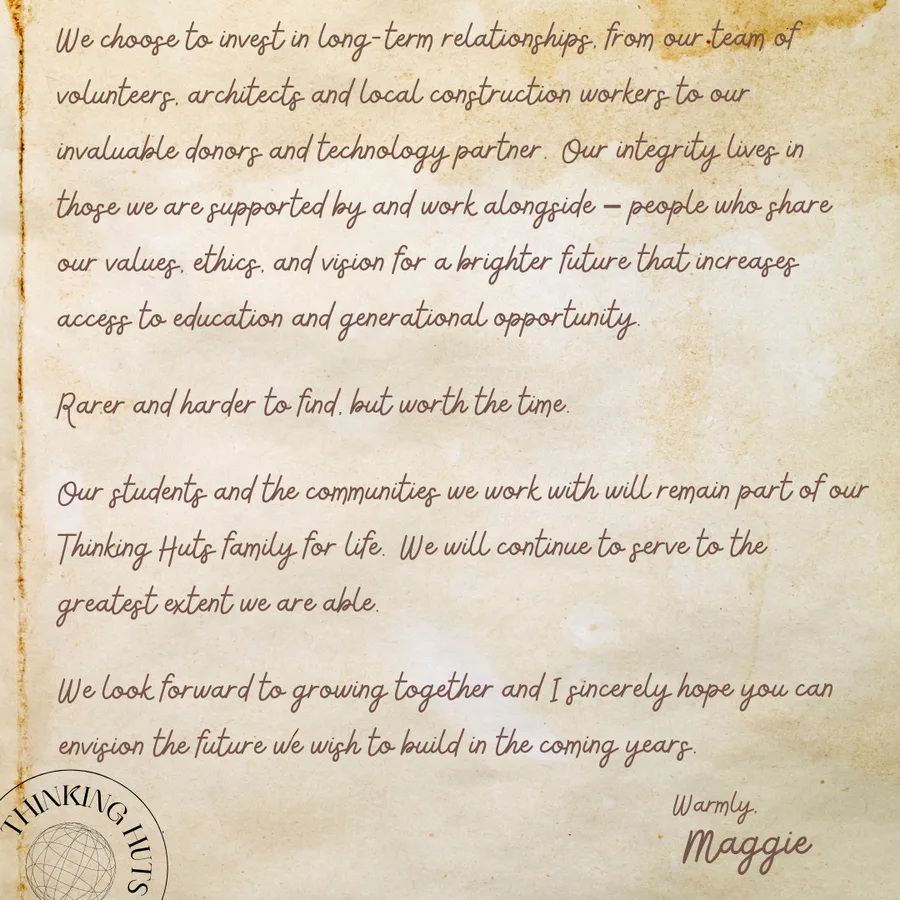 We choose to invest in long-term relationships, from our team of
volunteers, architects and local construction workers to our
invaluable donors and technology partner. Our integrity lives in
those we are supported by and work alongside – people who share
our values, ethics, and vision for a brighter future that increases
access to education and generational opportunity.
Rarer and harder to find, but worth the time.
Our students and the communities we work with will remain part of our
Thinking Huts family for life. We will continue to serve to the
greatest extent we are able.
We look forward to growing together and I sincerely hope you can
envision the future we wish to build in the coming years.
Warmly,
Maggie
THINKING HUTS